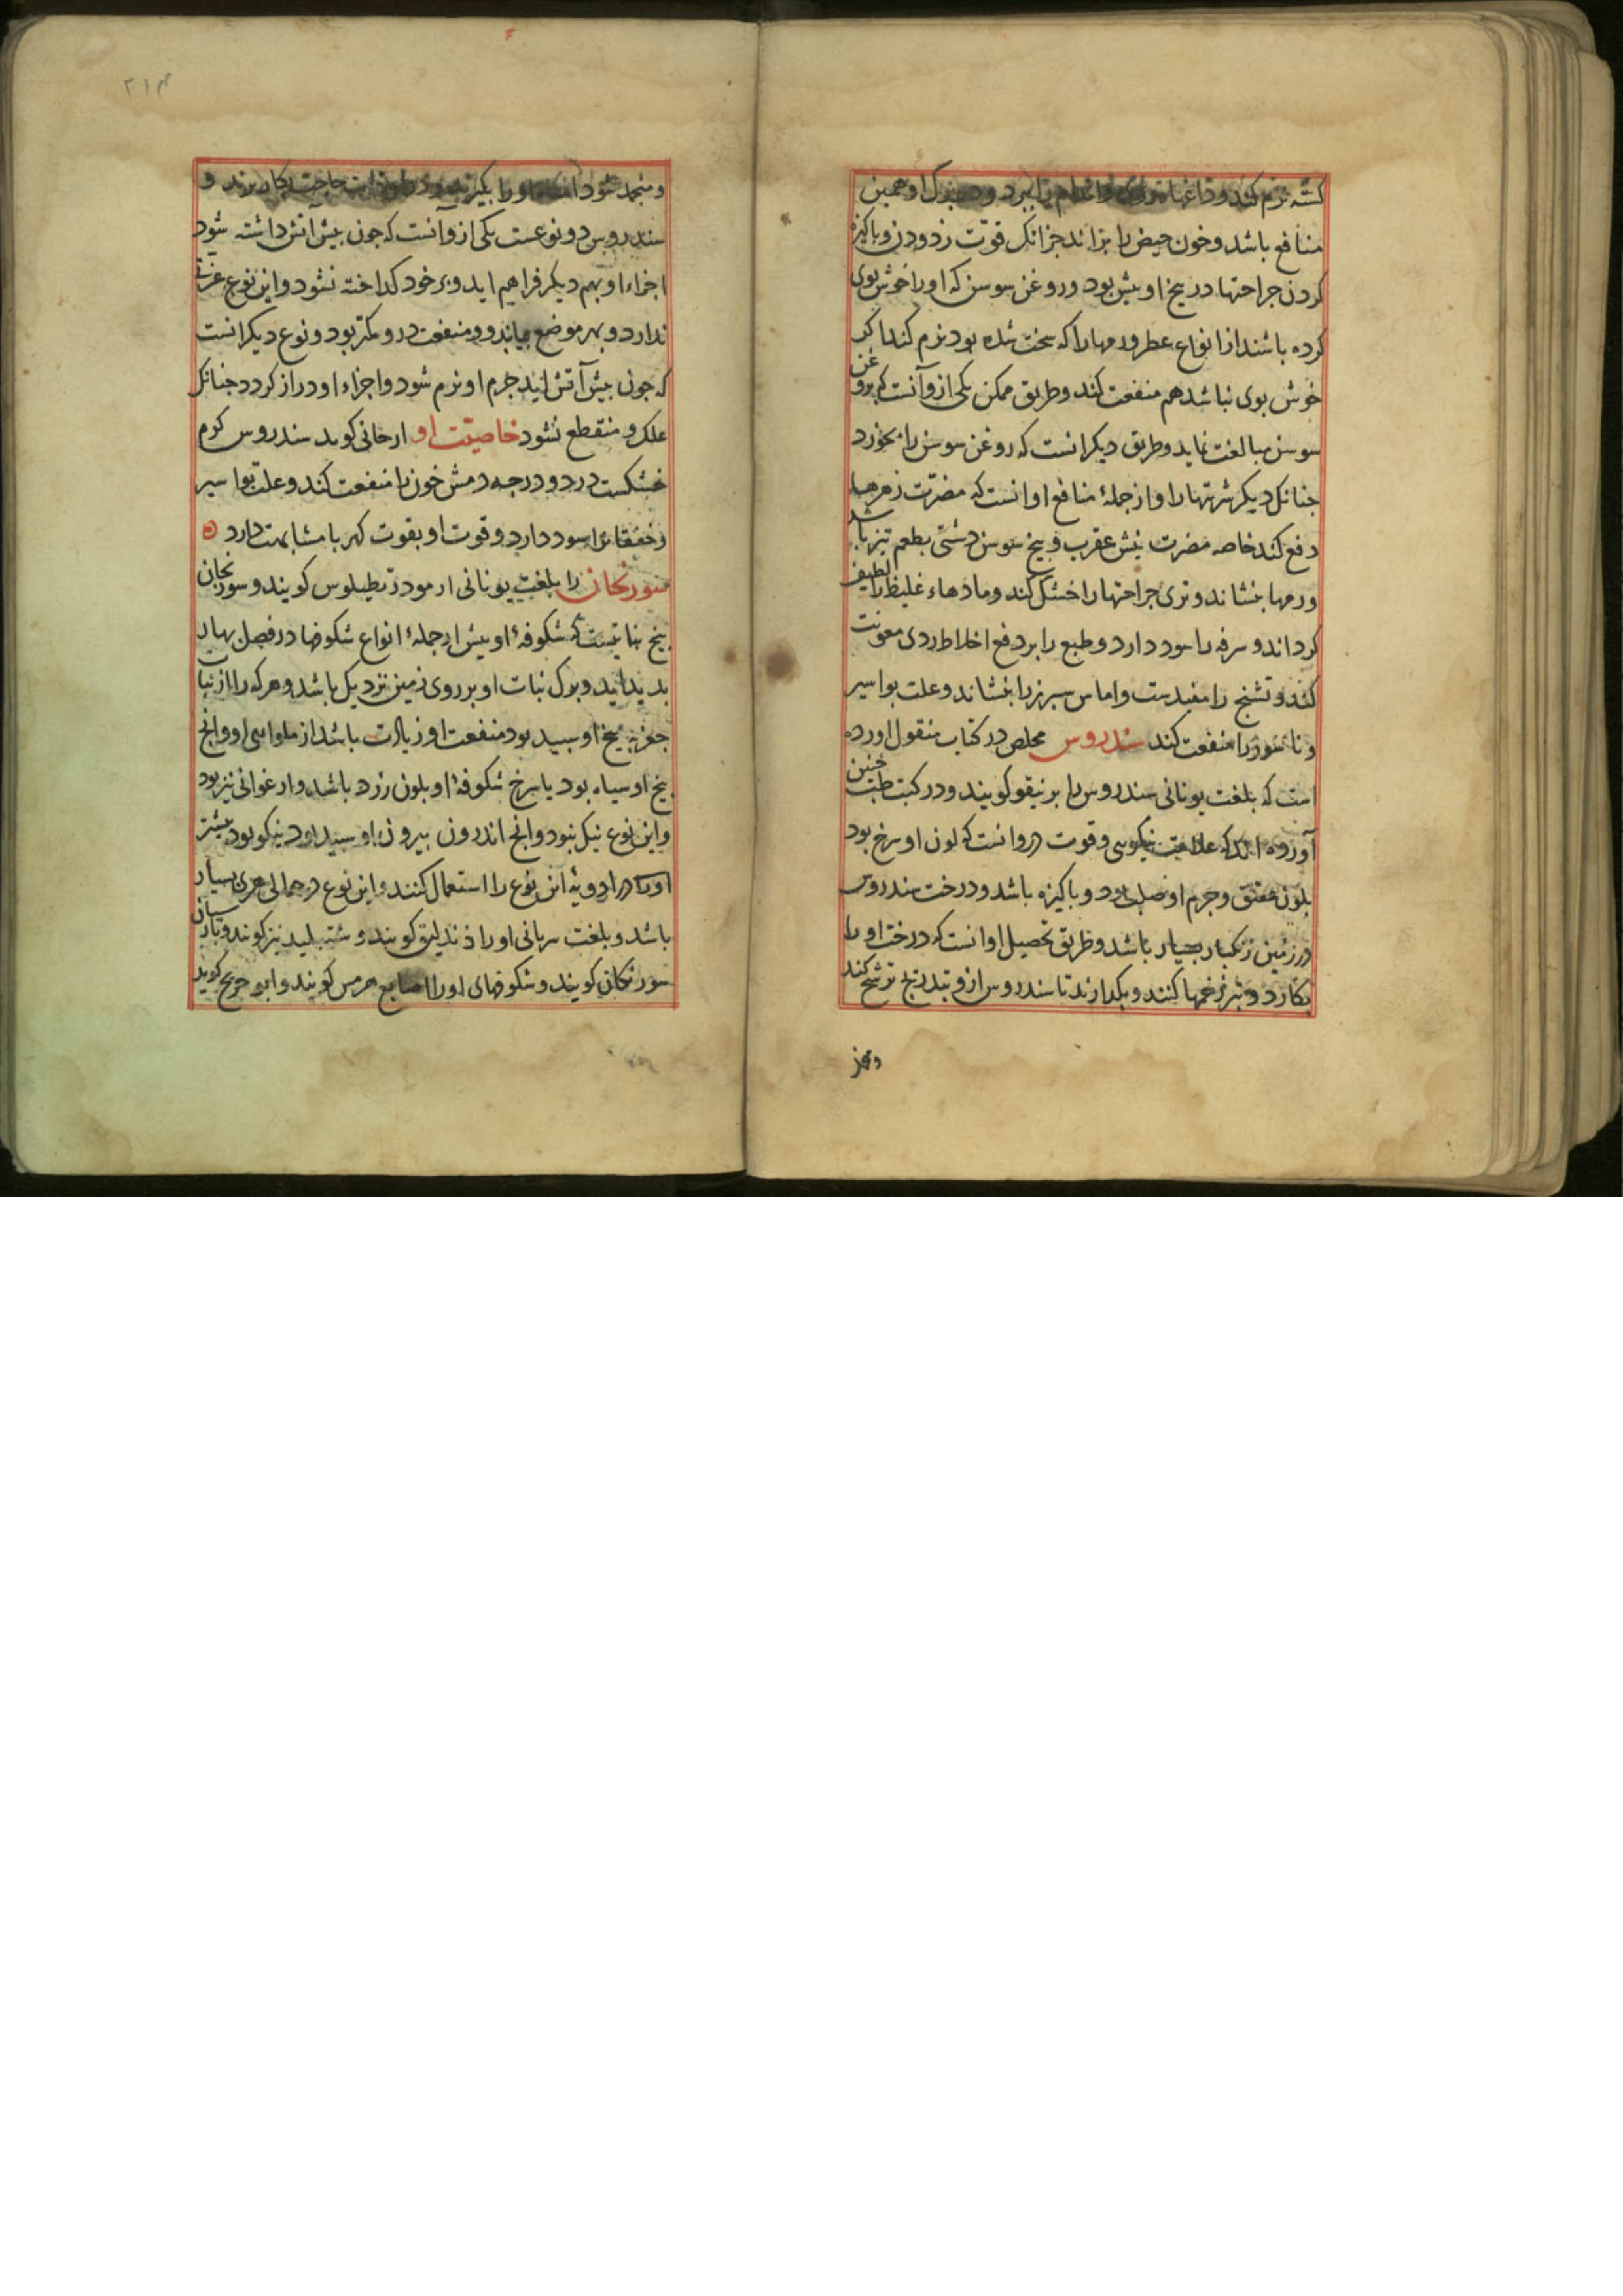 کشته نرم کند و داغها و اندام را ببرد و در برک او همین
منافع باشد و خون حیض را براند جز انک قوت زدودن و پاکیزه
کردن جراحتها در بیخ او بیش بود و روغن سوسن که اورا خوش بوی
کرده باشند از انواع عطر ورمها را که سخت شده بود نرم کند اکر
خوش بوی نباشد هم منفعت کند و طریق ممکن یکی ازو آنست که بروغن
سوسن مبالغت نماید و طریق دیکر انست که روغن سوسن را بخورد
جنانک دیکر شربتها را و از جملهٔ منافع او انست که مضرت زهرها
دفع کند خاصه مضرت نیش عقرب و بیخ سوسن دشتی بطعم تیز باشد
ورمها بنشاند و تری جراحتها را خشک کند و مادهاء غلیظ را لطیف
کرداند و سرفه را سود دارد و طبع را بر دفع اخلاط ردی معونت
کند و تشنج را مفیدست و اماس سبرز را بنشاند و علت بواسیر
و ناسور را منفعت کند سندروس مخلص در کتاب منقول اورده
است که بلغت یونانی سندروس را برنیقو کویند و در کتب طب جنین
آورده اند که علامت نیکویی و قوت در وانست که لون او سرخ بود
بلون عقیق و جرم او صلب بود و باکیزه باشد و درخت سندروس
در زمین زنکبار بسیار باشد و طریق تحصیل او انست که درخت او را
بکارد و تبر زخمها کنند و بکدارند تا سندروس ازو بتدریج ترشح کند
و منجمد شود اورا بکیرند و حاجت بکار برند و
سندروس دو نوعست یکی ازو آنست که جون بیش آتش داشته شود
اجزاء او بهم دیکر فراهم اید و بر خود کداخته نشود و این نوع عزتی
ندارد و بهر موضع بیابند و منفعت درو کمتر بود و نوع دیکر انست
که جون بیش آتش اید جرم او نرم شود و اجزاء او دراز کردد جنانک
علک و منقطع نشود خاصیت او ارجانی کوید سندروس کرم
خشکست در دو درجه دمش خون را منفعت کند و علت بواسیر
و خفقان را سود دارد و قوت او بقوت کهربا مشابهت دارد
سورنجان را بلغت یونانی کویند و سورنجان
بیخ نباتیست که شکوفهٔ او بیش از جملهٔ انواع شکوفها در فصل بهار
بدید اید و برک نبات او بر روی زمین نزدیک باشد و هرکه را از نبا
بیخ او سبید بود منفعت او زیادت باشد از ماوراء او و آنج
بیخ او سیاه بود یا سرخ شکوفهٔ او بلون زرد باشد و ارغوانی نیز بود
و این نوع نیک نبود و آنج اندرون بیرون او سبید بود نیکو بود بیشتر
او را در ادویه این نوع را استعمال کنند و این نوع در بسیار
باشد و بلغت سریانی او را کویند و شنبلید نیز کویند و بارسیان
سورنکان کویند و شکوفهای او را اصابع هرمس کویند و ابو جریج کوید
ومنجمد
۲۱۳